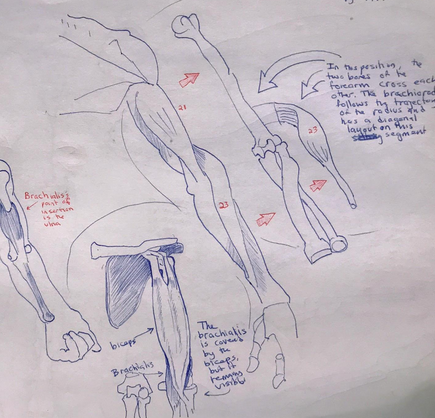 In this position, the
two bones of the
forearm cross each
other. The brachiorad
follows the trajectory
of the radius and
has a diagonal
layout on this
segment
21
23
23
Brachialis:
point of
insertion
is the
ulna
biceps
Brachialis
The
brachialis
is covered
by the
biceps,
but it
remains
visible